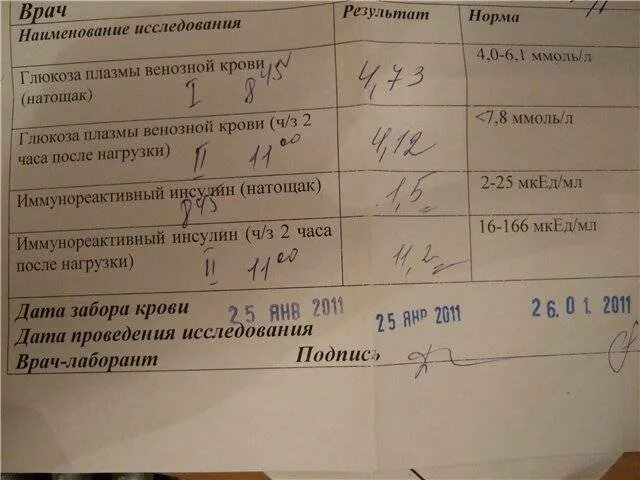 Врач
Наименование исследования Результат Норма
Глюкоза плазмы венозной крови 8 45 4,73 4,0-6,1 ммоль/л
(натощак) I
Глюкоза плазмы венозной крови (ч/з 2 4,12 <7,8 ммоль/л
часа после нагрузки) II 11 00
Иммунореактивный инсулин (натощак) 1,5 2-25 мкЕд/мл
8 45
Иммунореактивный инсулин (ч/з 2 часа 11,2 16-166 мкЕд/мл
после нагрузки) II 11 00
Дата забора крови 25 ЯНВ 2011
Дата проведения исследования 25 ЯНВ 2011 26.01.2011
Врач-лаборант Подпись